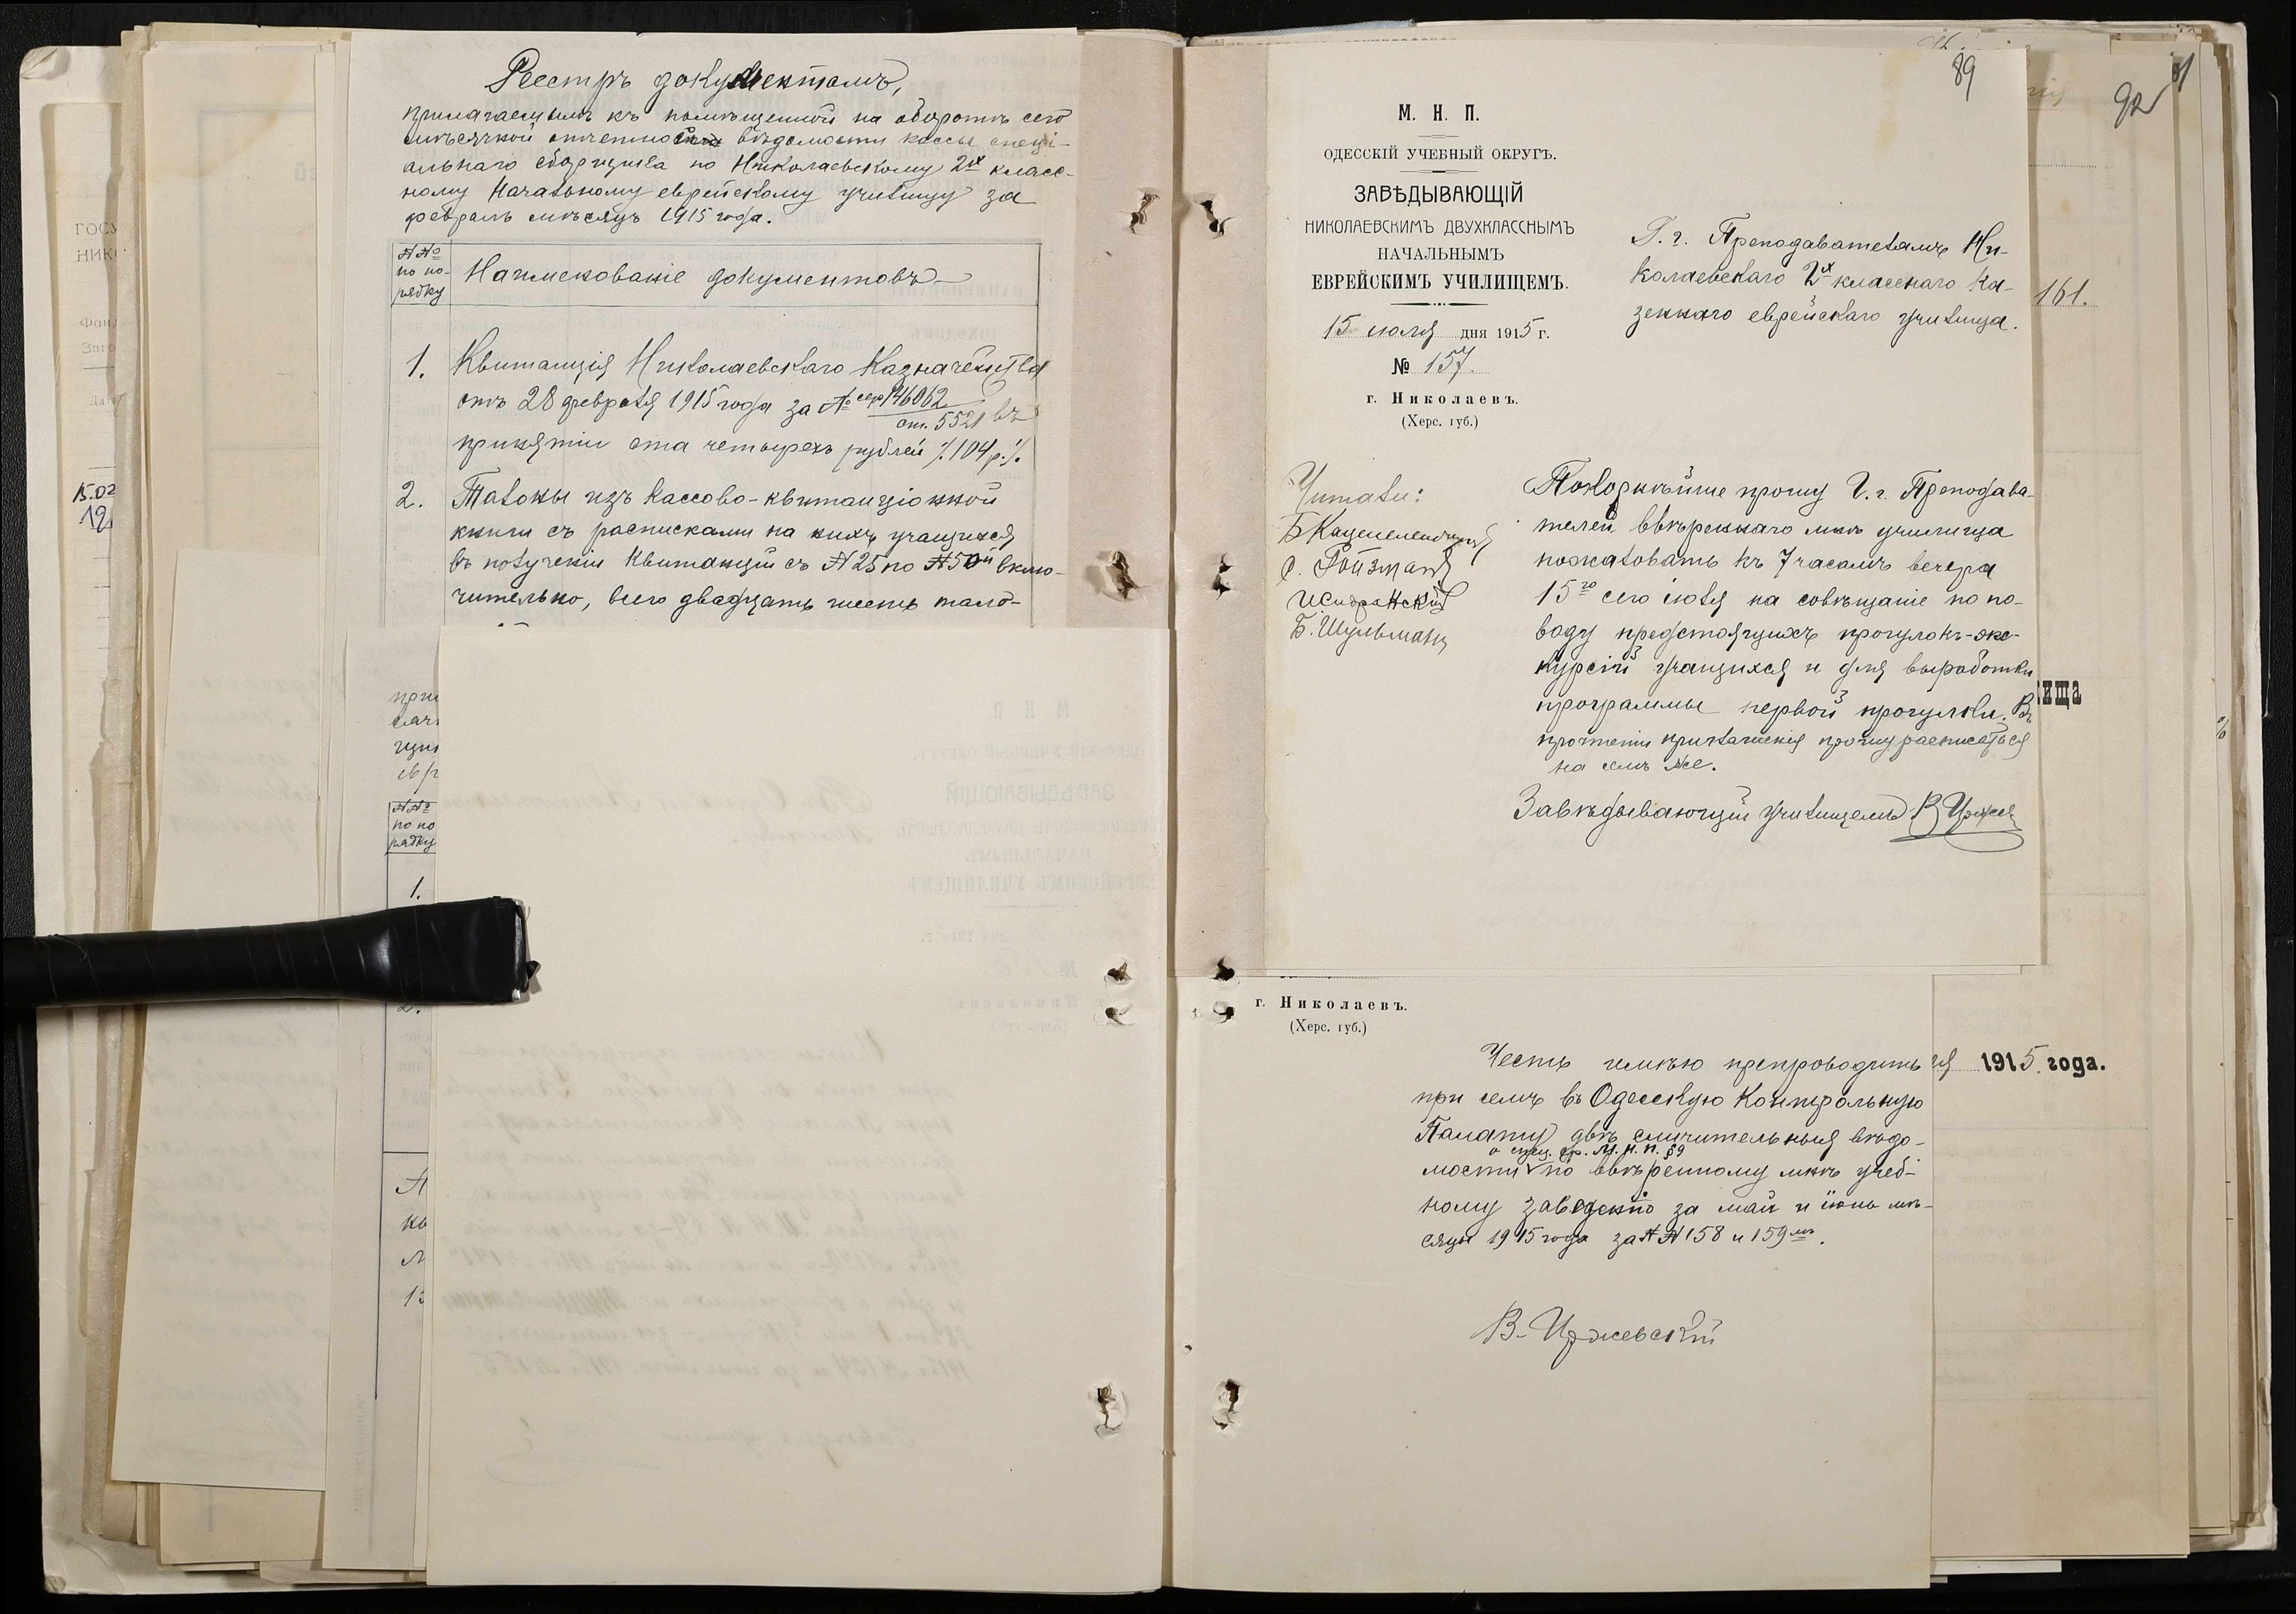 Реестръ документамъ,
прилагаемымъ къ помѣщенной на оборотѣ сей
мѣсячной отчетной вѣдомости кассы специ-
альнаго сборщика по Николаевскому 2х класс-
ному Начальному еврейскому училищу за
февраль мѣсяцъ 1915 года.
№№
по по-
рядку
Наименованіе документовъ
1. Квитанція Николаевскаго Казначейства
отъ 28 февраля 1915 года за № сер. 146062
ст. 5521 въ
принятіи ста четырехъ рублей ./.104 р./.
2. Талоны изъ кассово-квитанціонной
книги съ расписками на нихъ учащихся
въ полученіи квитанцій съ №25 по №50й вклю-
чительно, всего двадцать шесть тало-
№№
по по
рядку
1.
15.02
89
92
161.
М. Н. П.
ОДЕССКІЙ УЧЕБНЫЙ ОКРУГЪ.
ЗАВѢДЫВАЮЩІЙ
НИКОЛАЕВСКИМЪ ДВУХКЛАССНЫМЪ
НАЧАЛЬНЫМЪ
ЕВРЕЙСКИМЪ УЧИЛИЩЕМЪ.
15 июля дня 1915 г.
№ 157.
г. Николаевъ.
(Херс. губ.)
Г. г. Преподавателямъ Ни-
колаевскаго 2х класснаго ка-
зеннаго еврейскаго училища.
Читали:
Б. Шульманъ
Покорнѣйше прошу Г. г. Преподава-
телей ввѣреннаго мнѣ училища
пожаловать къ 7 часамъ вечера
15го сего іюля на совѣщаніе по по-
воду предстоящихъ прогулокъ-экс-
курсій учащихся и для выработки
программы первой прогулки. Въ
прочтеніи приглашенія прошу расписаться
на семъ же.
Завѣдывающій училищемъ
ища
г. Николаевъ.
(Херс. губ.)
Честь имѣю препроводить
при семъ въ Одесскую Контрольную
Палату двѣ сличительныя вѣдо-
о спец. ср. М. Н. П. §9
мости по ввѣренному мнѣ учеб-
ному заведенію за май и іюнь мѣ-
сяцы 1915 года за №№ 158 и 159мъ.
1915 года.
В. Иржевскій